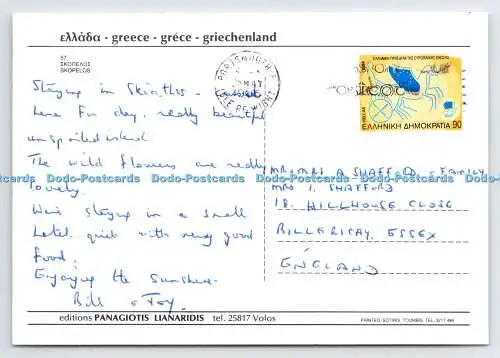 ελλάδα - greece - gréce - griechenland
57
ΣΚΟΠΕΛΟΣ
SKOPELOS
PORTSMOUTH &
ISLE OF WIGHT
ΕΛΛΗΝΙΚΗ ΔΗΜΟΚΡΑΤΙΑ 90
HELLAS
Staying in Skiathos - 
here for day. really beautiful
unspoiled island
The wild flowers are really
lovely.
We're staying in a small
hotel quiet with very good
food.
Enjoying the sunshine
Bill &
MR & MRS A SHAFFORD & FAMILY
MRS I. SHAFFORD
18 HILLHOUSE CLOSE
BILLERICAY ESSEX
ENGLAND
Dodo-Postcards Dodo-Postcards Dodo-Postcards Dodo-Postcards
editions PANAGIOTIS LIANARIDIS tel. 25817 Volos
PRINTED: SOTIRIS. TOUMBIS. TEL.